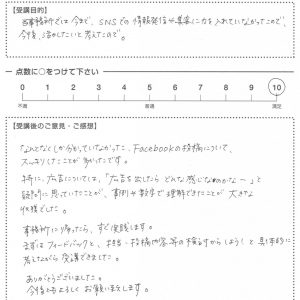 【受講目的】
当事務所では今まで、SNSでの情報発信や集客に力を入れていなかったので、
今後、活かしたいと考えたので。
― 点数に○をつけて下さい
0 1 2 3 4 5 6 7 8 9 10
不満 普通 満足
【受講後のご意見・ご感想】
なんとなくしか分かっていなかった、Facebookの投稿について、
スッキリしたことが多かったです。
特に、広告については、「広告を出したらどんな感じなのかな〜」と
疑問に思っていたことが、事例や数字で理解できたことが大きな
収穫でした。
事務所に帰ったら、すぐ実践します。
まずはフィードバックと、担当・投稿内容等の検討からしようと具体的に
考えながら受講できました。
ありがとうございました。
今後ともよろしくお願いいたします。